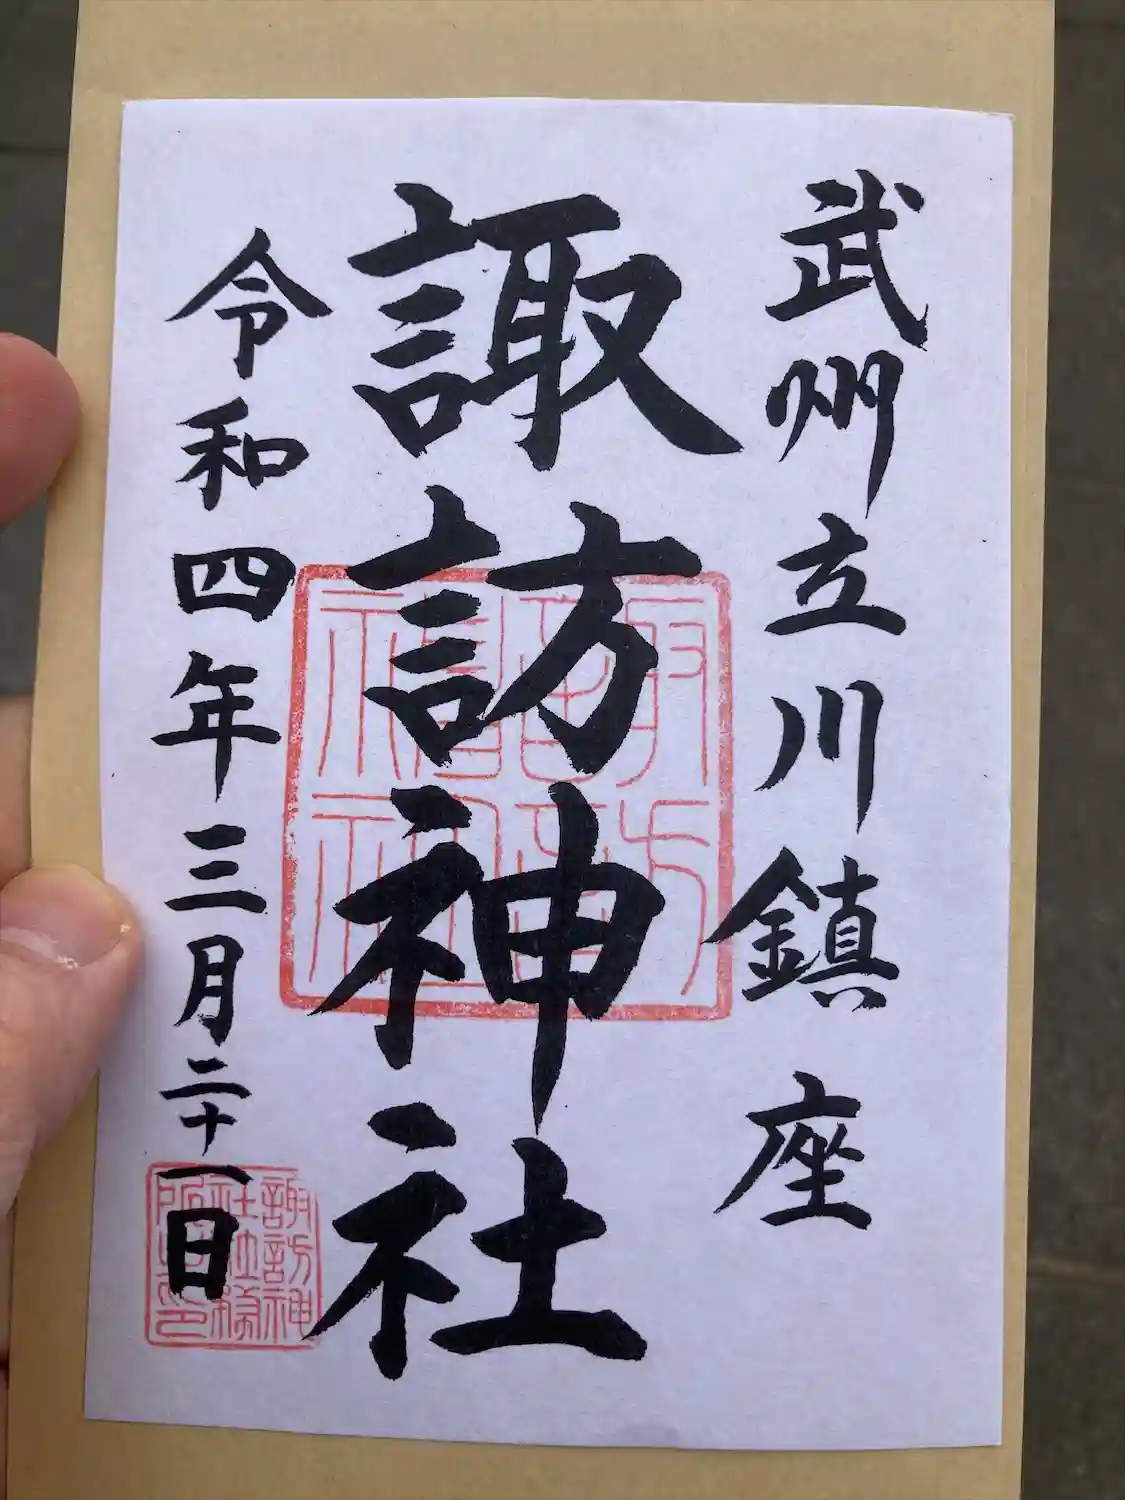 武州立川鎮座
諏訪神社
令和四年三月二十一日
諏訪神社
諏訪神
社社務
所之印